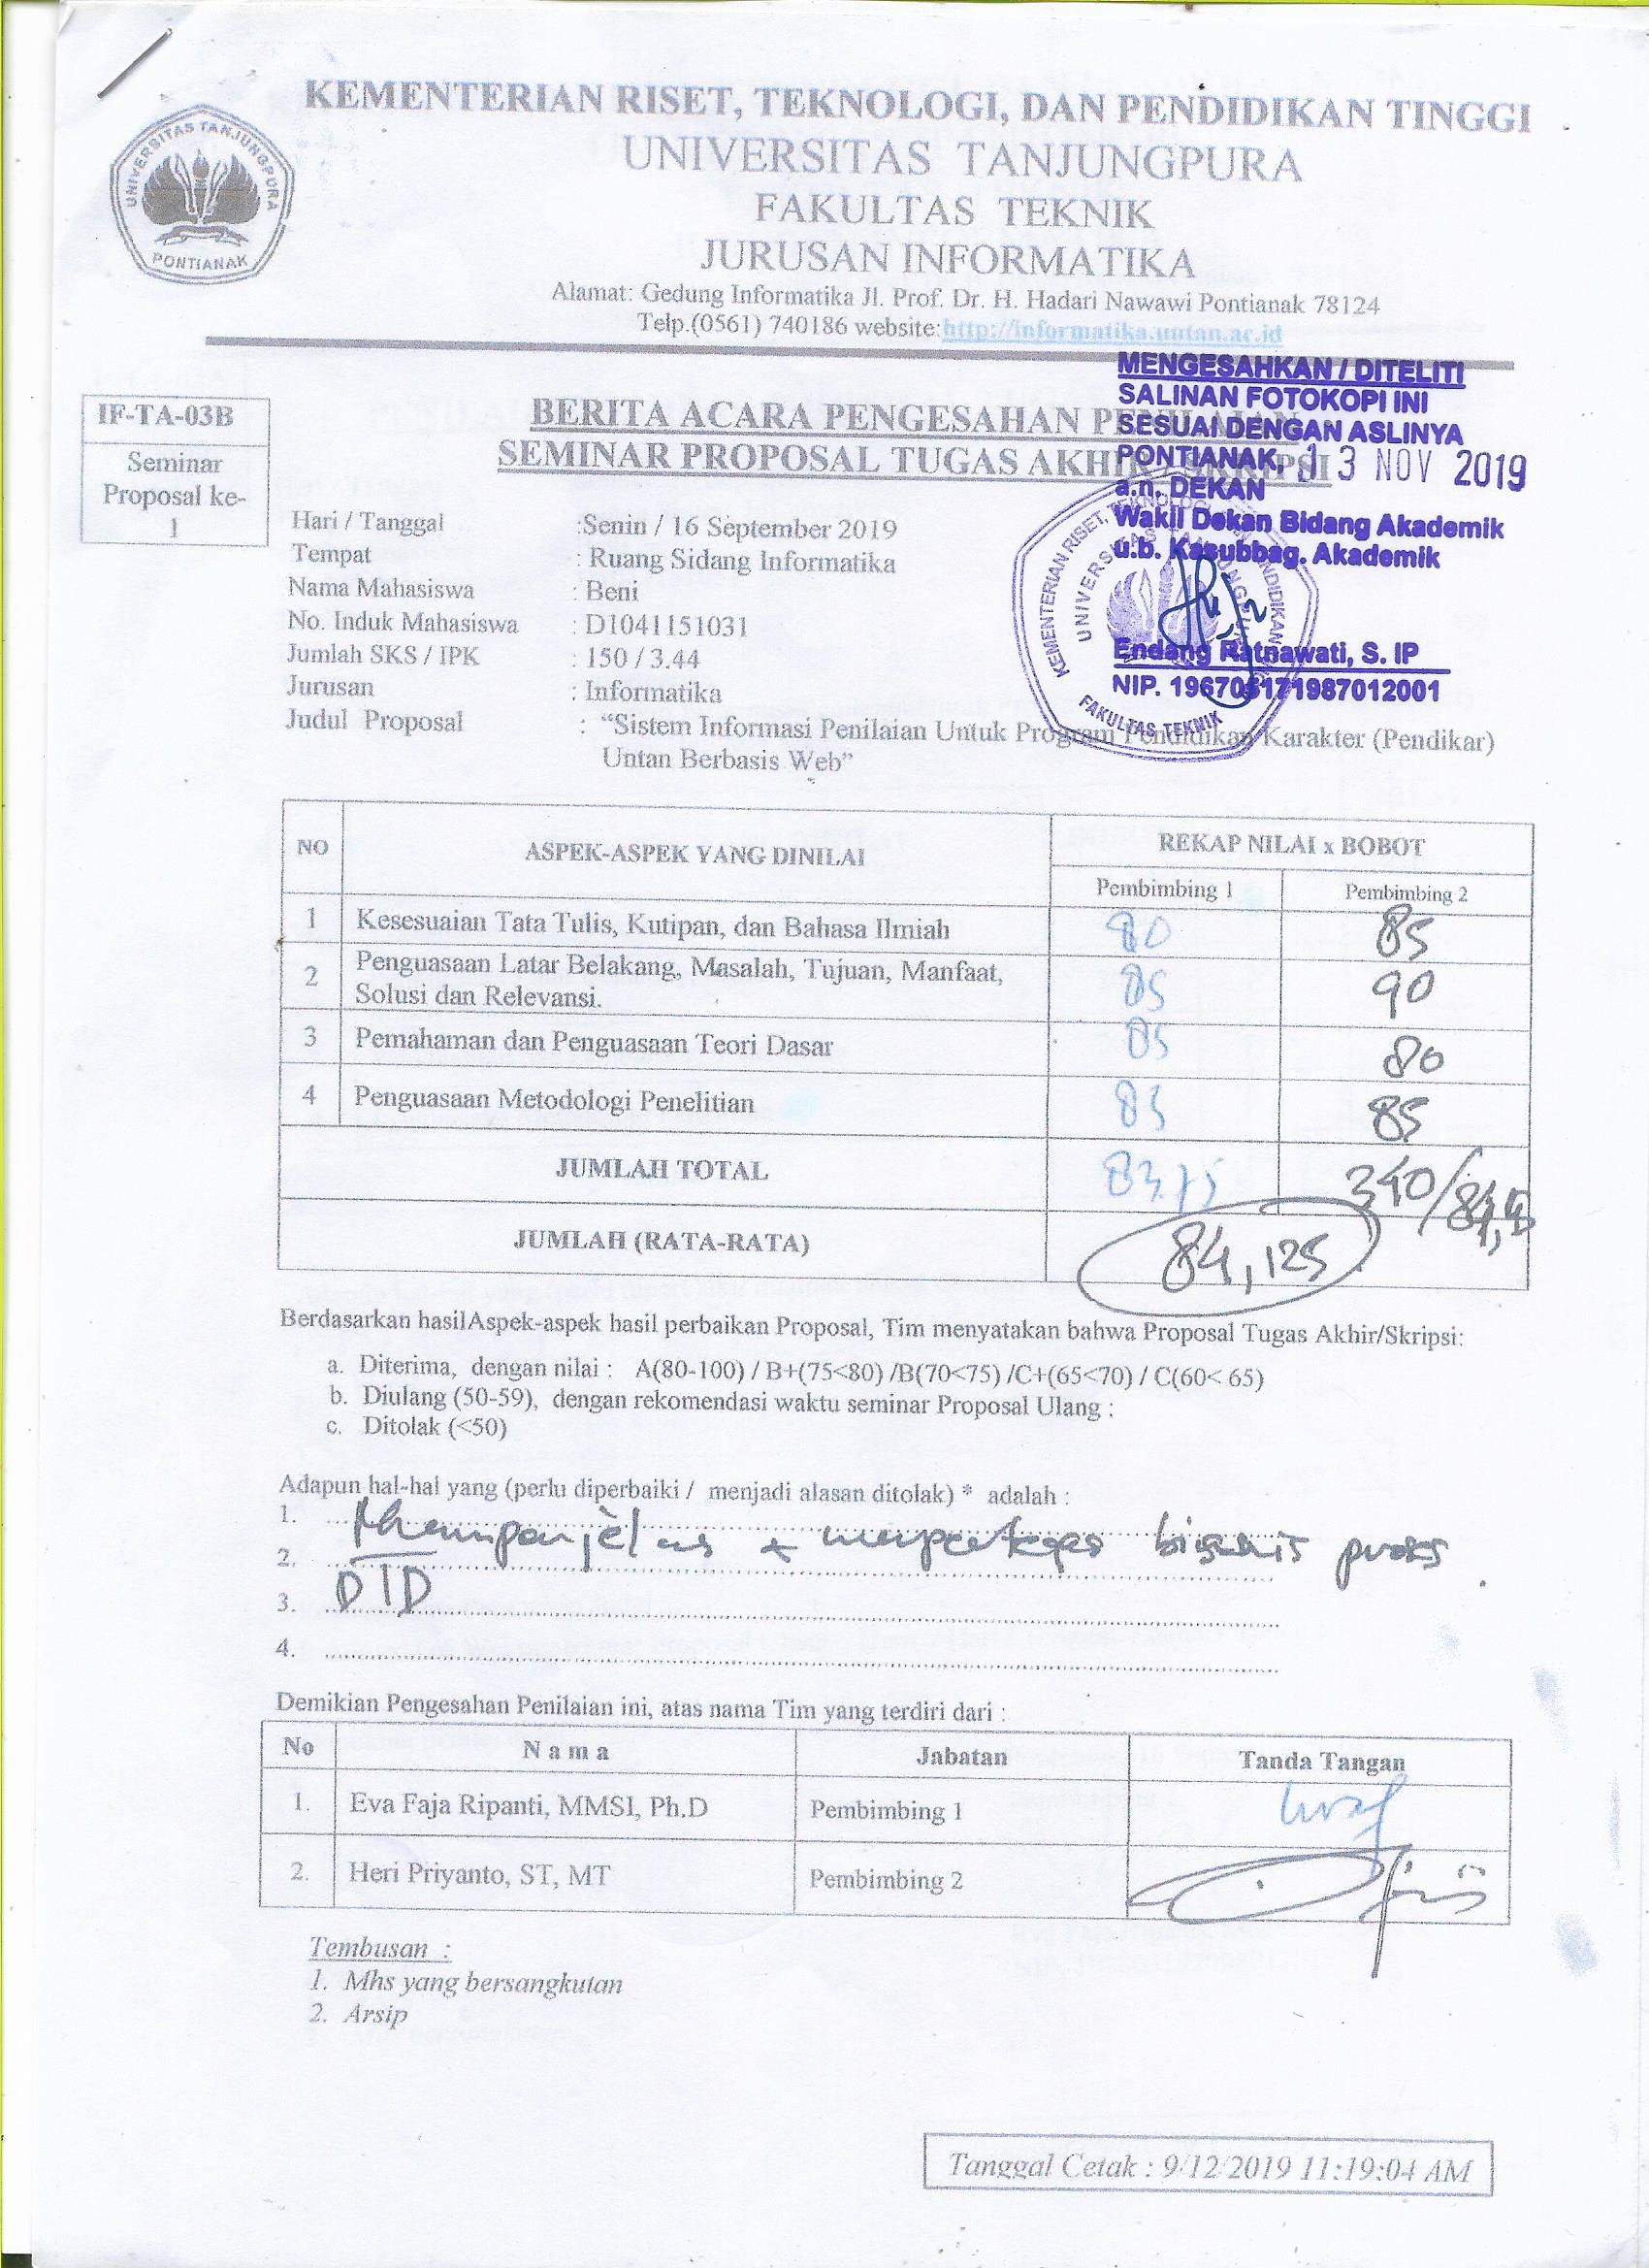 UNIVERSITAS TANJUNGPURA
PONTIANAK
KEMENTERIAN RISET, TEKNOLOGI, DAN PENDIDIKAN TINGGI
UNIVERSITAS TANJUNGPURA
FAKULTAS TEKNIK
JURUSAN INFORMATIKA
Alamat: Gedung Informatika Jl. Prof. Dr. H. Hadari Nawawi Pontianak 78124
Telp.(0561) 740186 website:http://informatika.untan.ac.id
MENGESAHKAN / DITELITI
SALINAN FOTOKOPI INI
SESUAI DENGAN ASLINYA
PONTIANAK, 13 NOV 2019
a.n. DEKAN
Wakil Dekan Bidang Akademik
u.b. Kasubbag. Akademik
Endang Ratnawati, S. IP
NIP. 196705171987012001
FAKULTAS TEKNIK
IF-TA-03B
Seminar
Proposal ke-
1
BERITA ACARA PENGESAHAN PENILAIAN
SEMINAR PROPOSAL TUGAS AKHIR
Hari / Tanggal :Senin / 16 September 2019
Tempat : Ruang Sidang Informatika
Nama Mahasiswa : Beni
No. Induk Mahasiswa : D1041151031
Jumlah SKS / IPK : 150 / 3.44
Jurusan : Informatika
Judul Proposal : “Sistem Informasi Penilaian Untuk Program Pendidikan Karakter (Pendikar)
Untan Berbasis Web”
NO ASPEK-ASPEK YANG DINILAI REKAP NILAI x BOBOT
Pembimbing 1 Pembimbing 2
1 Kesesuaian Tata Tulis, Kutipan, dan Bahasa Ilmiah 80 85
2 Penguasaan Latar Belakang, Masalah, Tujuan, Manfaat,
Solusi dan Relevansi. 85 90
3 Pemahaman dan Penguasaan Teori Dasar 85 80
4 Penguasaan Metodologi Penelitian 85 85
JUMLAH TOTAL 83.75 340/
JUMLAH (RATA-RATA) 84,125
Berdasarkan hasilAspek-aspek hasil perbaikan Proposal, Tim menyatakan bahwa Proposal Tugas Akhir/Skripsi:
a. Diterima, dengan nilai : A(80-100) / B+(75<80) /B(70<75) /C+(65<70) / C(60< 65)
b. Diulang (50-59), dengan rekomendasi waktu seminar Proposal Ulang :
c. Ditolak (<50)
Adapun hal-hal yang (perlu diperbaiki / menjadi alasan ditolak) * adalah :
1.
2. bisnis proses
3.
4.
Demikian Pengesahan Penilaian ini, atas nama Tim yang terdiri dari :
No N a m a Jabatan Tanda Tangan
1. Eva Faja Ripanti, MMSI, Ph.D Pembimbing 1
2. Heri Priyanto, ST, MT Pembimbing 2
Tembusan :
1. Mhs yang bersangkutan
2. Arsip
Tanggal Cetak : 9/12/2019 11:19:04 AM